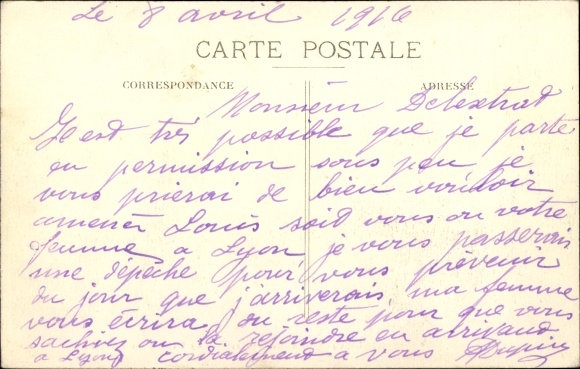 Le 8 avril 1916
CARTE POSTALE
CORRESPONDANCE
ADRESSE
Monsieur Delextrat
Il est très possible que je parte
en permission sous peu je
vous prierai de bien vouloir
amener Louis soit vous ou votre
femme a Lyon je vous passerais
une dépêche pour vous prévenir
du jour que j'arriverais, ma femme
vous écrira du reste pour que vous
sachiez ou la rejoindre en arrivant
a Lyon cordialement a vous